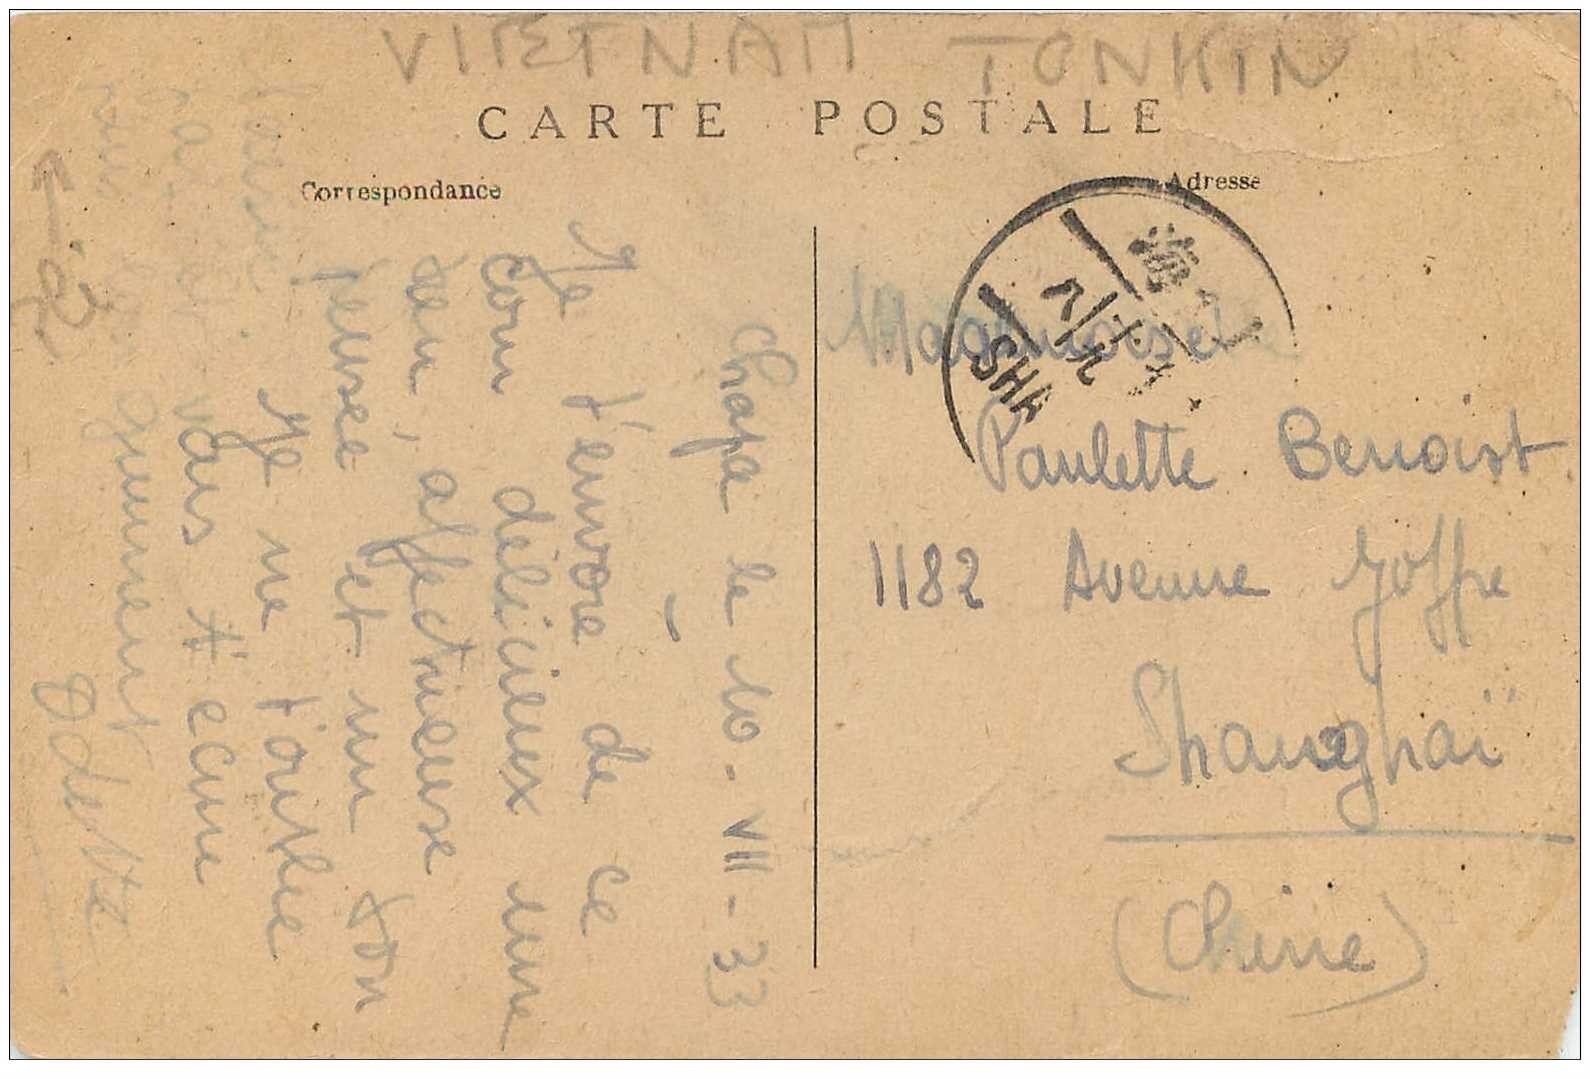 VIETNAM TONKIN
CARTE POSTALE
Correspondance
Adresse
Chapa le 10-VII-33
Je t'envoie de ce
coin délicieux une
affectueuse
pensée et un bon
baiser.
Je ne t'oublie
pas et vais t'écrire
Odette
海
SHA
Mademoiselle
Paulette Benoist
1182 Avenue Joffre
Shanghaï
(Chine)